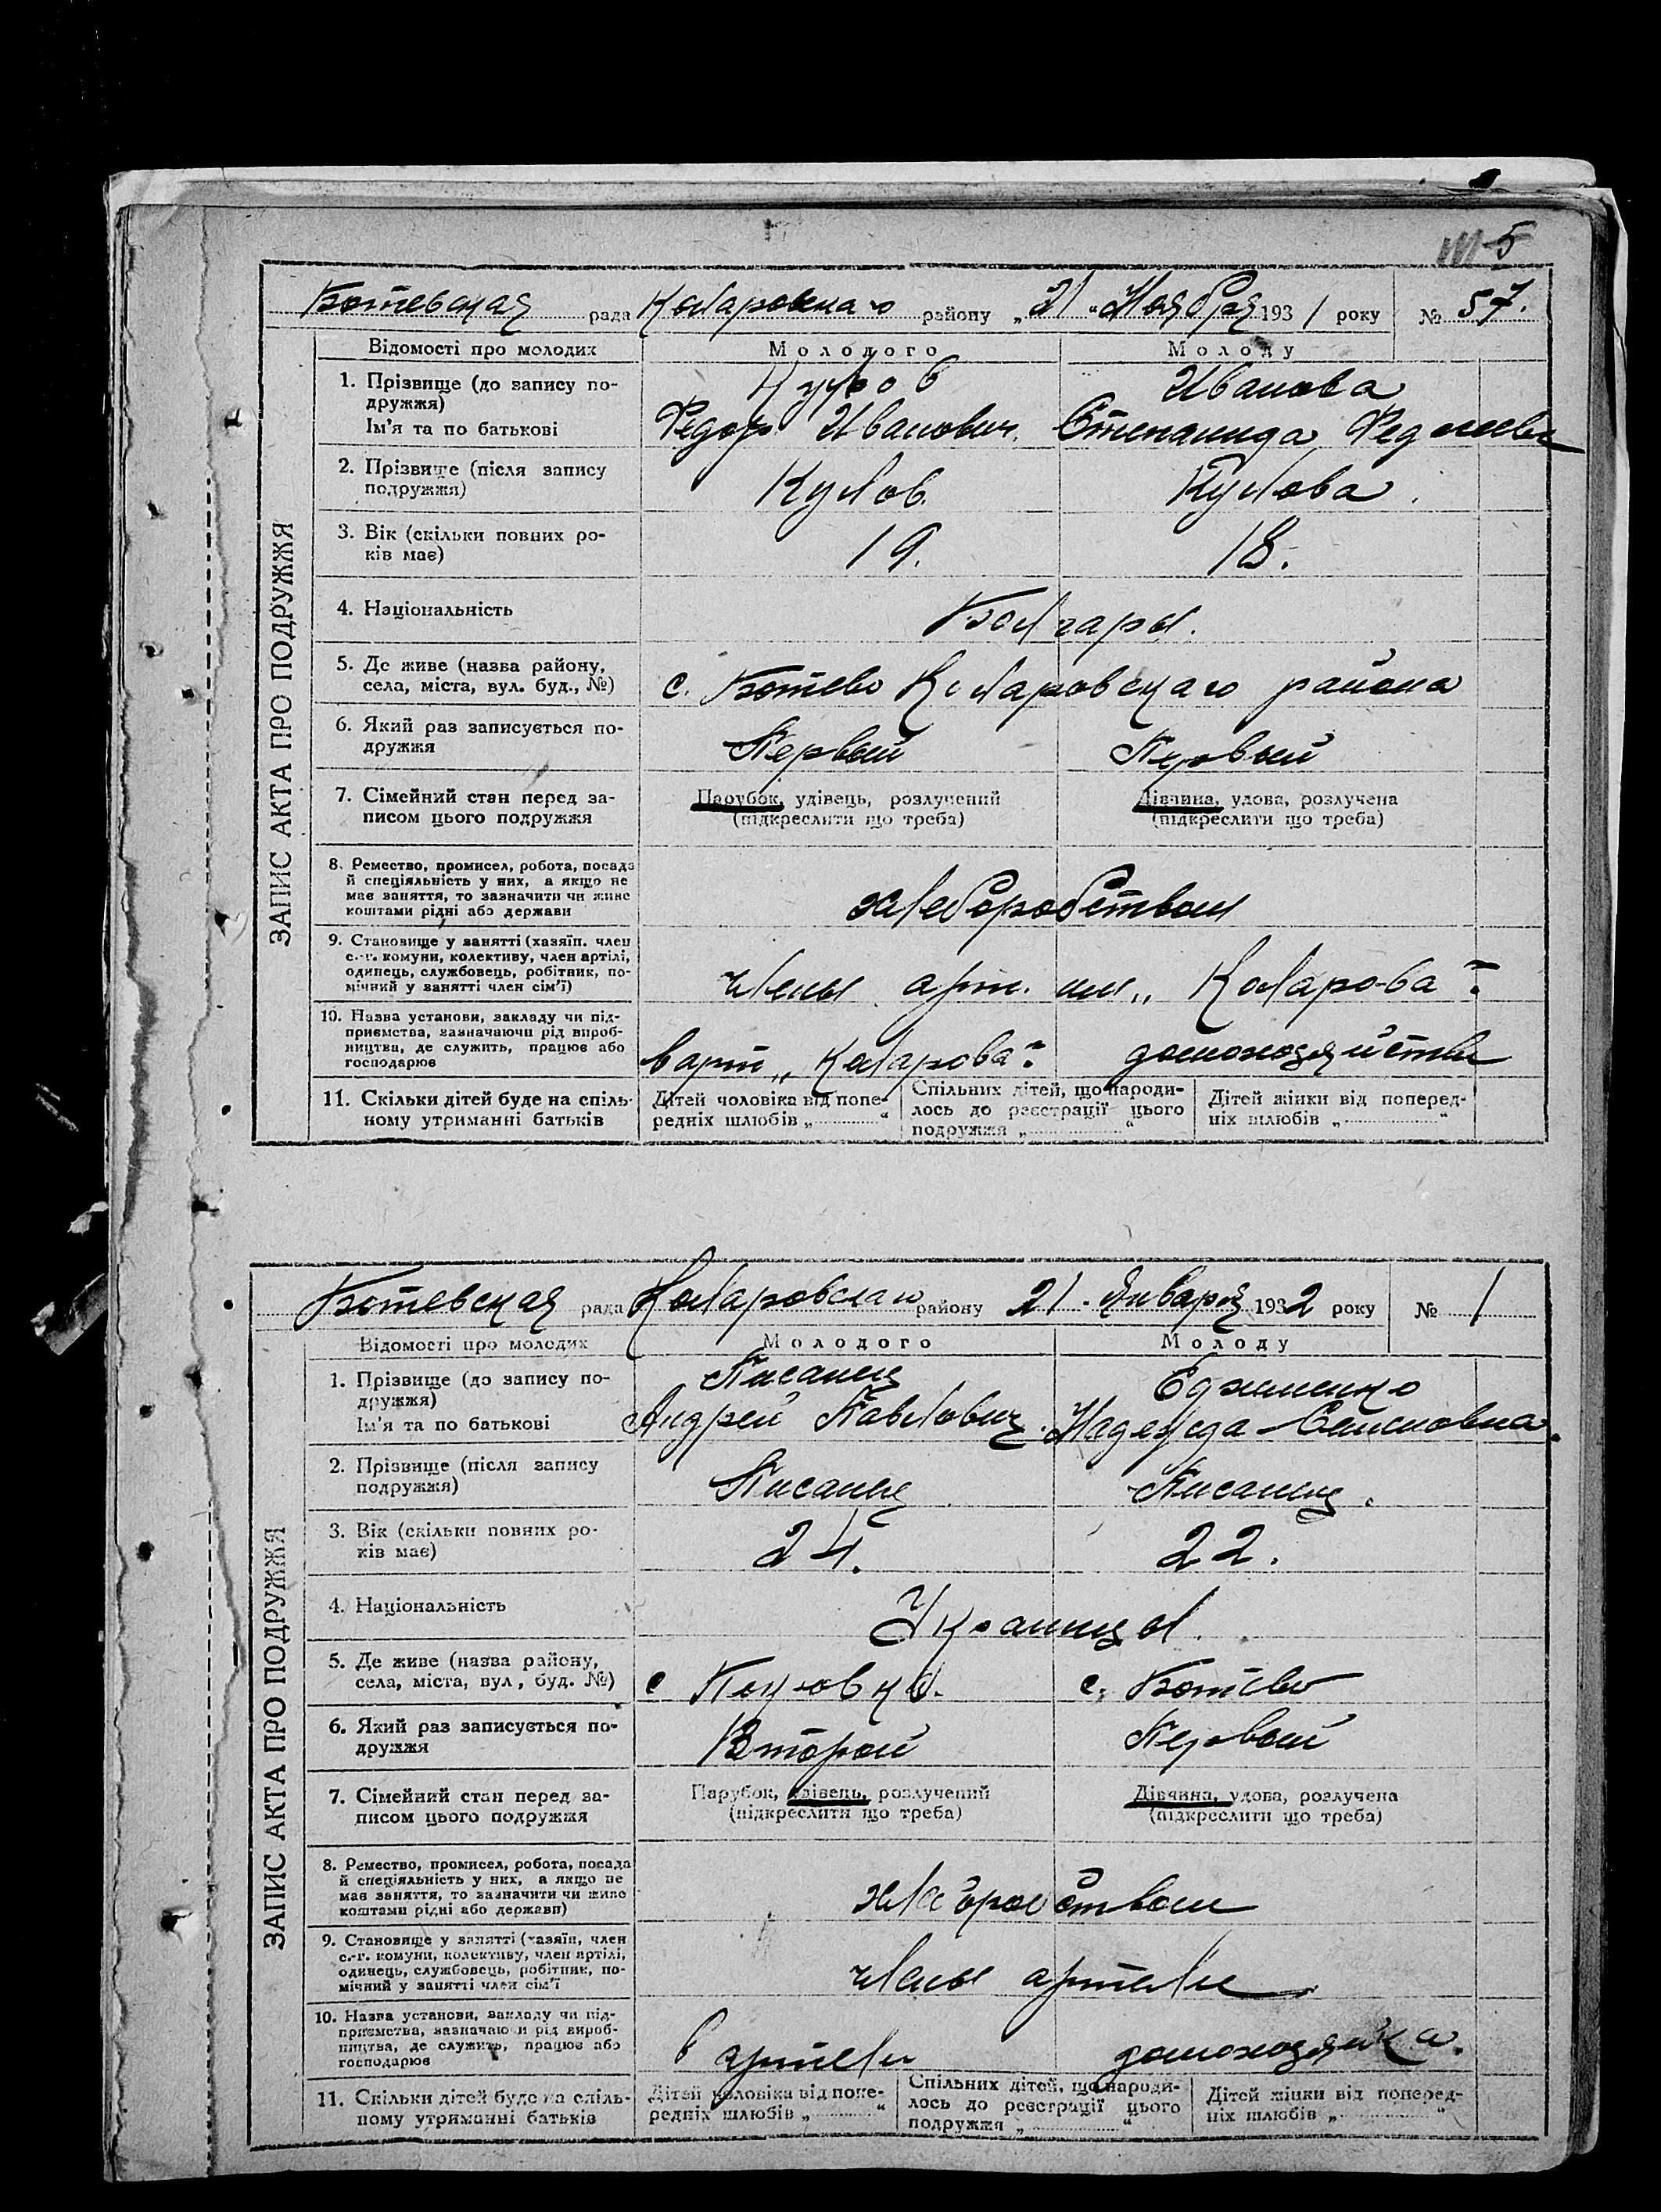 5
Ботевская рада Коларовскаго району „21 " Ноября 1931 року № 57.
Відомості про молодих Молодого Молоду
1. Прізвище (до запису по-
дружжя)
Ім'я та по батькові
Иванова
Федор Иванович. Степанида
2. Прізвище (після запису
подружжя)
Кулов. Кулова.
3. Вік (скільки повних ро-
ків має)
19. 18.
4. Національність
Болгары.
5. Де живе (назва району,
села, міста, вул. буд., №)
с. Ботево Коларовскаго района
6. Який раз записується по-
дружжя
Первый Первый
7. Сімейний стан перед за-
писом цього подружжя
Парубок, удівець, розлучений
(підкреслити що треба)
Дівчина, удова, розлучена
(підкреслити що треба)
8. Ремество, промисел, робота, посада
й спеціяльність у них, а якщо не
має заняття, то зазначити чи живе
коштами рідні або держави
хлеборобством
9. Становище у занятті (хазяїн. член
с.-г. комуни, колективу, член артілі,
одинець, службовець, робітник, по-
мічний у занятті член сім'ї)
члены арт. им „Коларова".
10. Назва установи, закладу чи під-
приємства, зазначаючи рід вироб-
ництва, де служить, працює або
господарює
в арт „Коларова". домохозяйства
11. Скільки дітей буде на спіль-
ному утриманні батьків
Дітей чоловіка від попе-
редніх шлюбів „ "
Спільних дітей, що народи-
лось до реєстрації цього
подружжя „ "
Дітей жінки від поперед-
ніх шлюбів „ "
ЗАПИС АКТА ПРО ПОДРУЖЖЯ
Ботевская рада Коларовскаго району 21. Января 1932 року № 1
Відомості про молодих Молодого Молоду
1. Прізвище (до запису по-
дружжя)
Ім'я та по батькові
Писанец
Андрей Павлович. Надежда Семеновна.
2. Прізвище (після запису
подружжя)
Писанец Писанец.
3. Вік (скільки повних ро-
ків має)
24. 22.
4. Національність
Украинцы.
5. Де живе (назва району,
села, міста, вул, буд. №)
с Покровка. с. Ботево
6. Який раз записується по-
дружжя
Второй Первый
7. Сімейний стан перед за-
писом цього подружжя
Парубок, удівець, розлучений
(підкреслити що треба)
Дівчина, удова, розлучена
(підкреслити що треба)
8. Ремество, промисел, робота, посада
й спеціяльність у них, а якщо не
має заняття, то зазначити чи живе
коштами рідні або держави)
хлеборобством
9. Становище у занятті (хазяїн, член
с.-г. комуни, колективу, член артілі,
одинець, службовець, робітник, по-
мічний у занятті член сім'ї
члены артели
10. Назва установи, закладу чи під-
приємства, зазначаючи рід вироб-
ництва, де служить, працює або
господарює
в артели домохозяйка.
11. Скільки дітей буде на спіль-
ному утриманні батьків
Дітей чоловіка від попе-
редніх шлюбів „ "
Спільних дітей, що народи-
лось до реєстрації цього
подружжя „ "
Дітей жінки від поперед-
ніх шлюбів „ "
ЗАПИС АКТА ПРО ПОДРУЖЖЯ